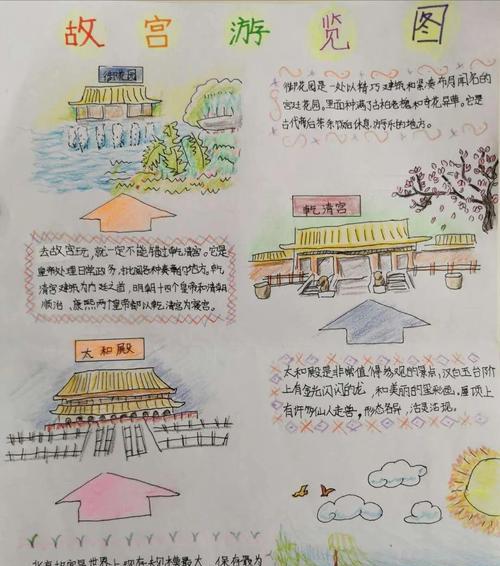 故宫游览图
御花园
御花园是一处以精巧建筑和紧凑布局闻名的
宫廷花园。里面种满了古柏老槐和奇花异草。它是
古代帝后茶余饭后休息、游乐的地方。
乾清宫
去故宫玩，就一定不能错过乾清宫。它是
皇帝处理日常政务，批阅各种奏章的地方。乾
清宫建筑为内廷之首，明朝十四个皇帝和清朝
顺治、康熙两个皇帝都以乾清宫为寝宫。
太和殿
太和殿是非常值得参观的景点，汉白玉台阶
上有金光闪闪的龙，和美丽的里彩画。屋顶上
有许多仙人走兽，形态各异，活灵活现。
北京故宫是世界上现存规模最大、保存最为